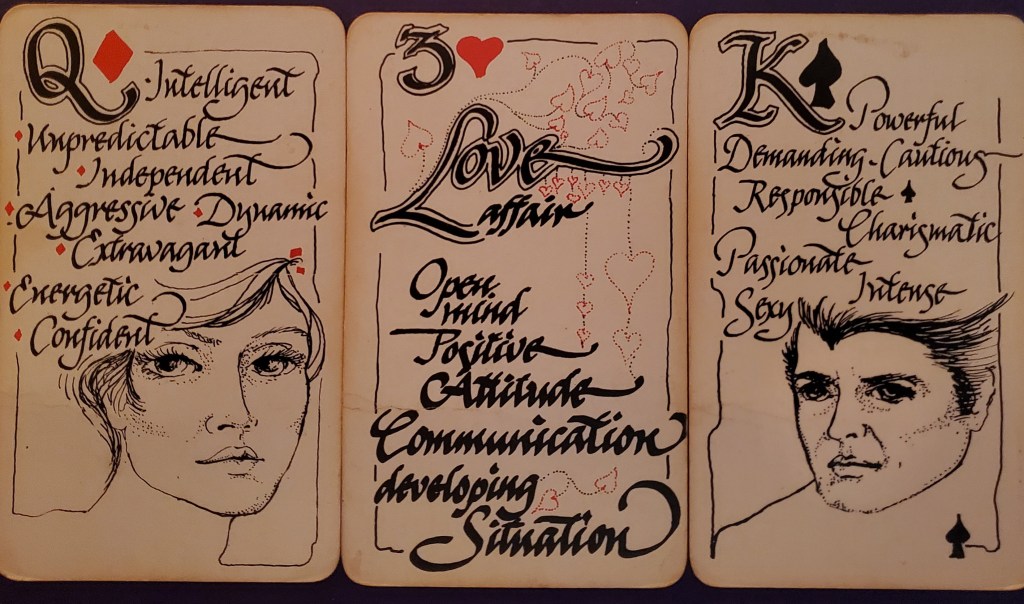 Q
Intelligent
Unpredictable
Independent
Aggressive Dynamic
Extravagant
Energetic
Confident
3
Love
affair
Open
mind
Positive
Attitude
Communication
developing
Situation
K
Powerful
Demanding - Cautious
Responsible
Charismatic
Passionate
Intense
Sexy